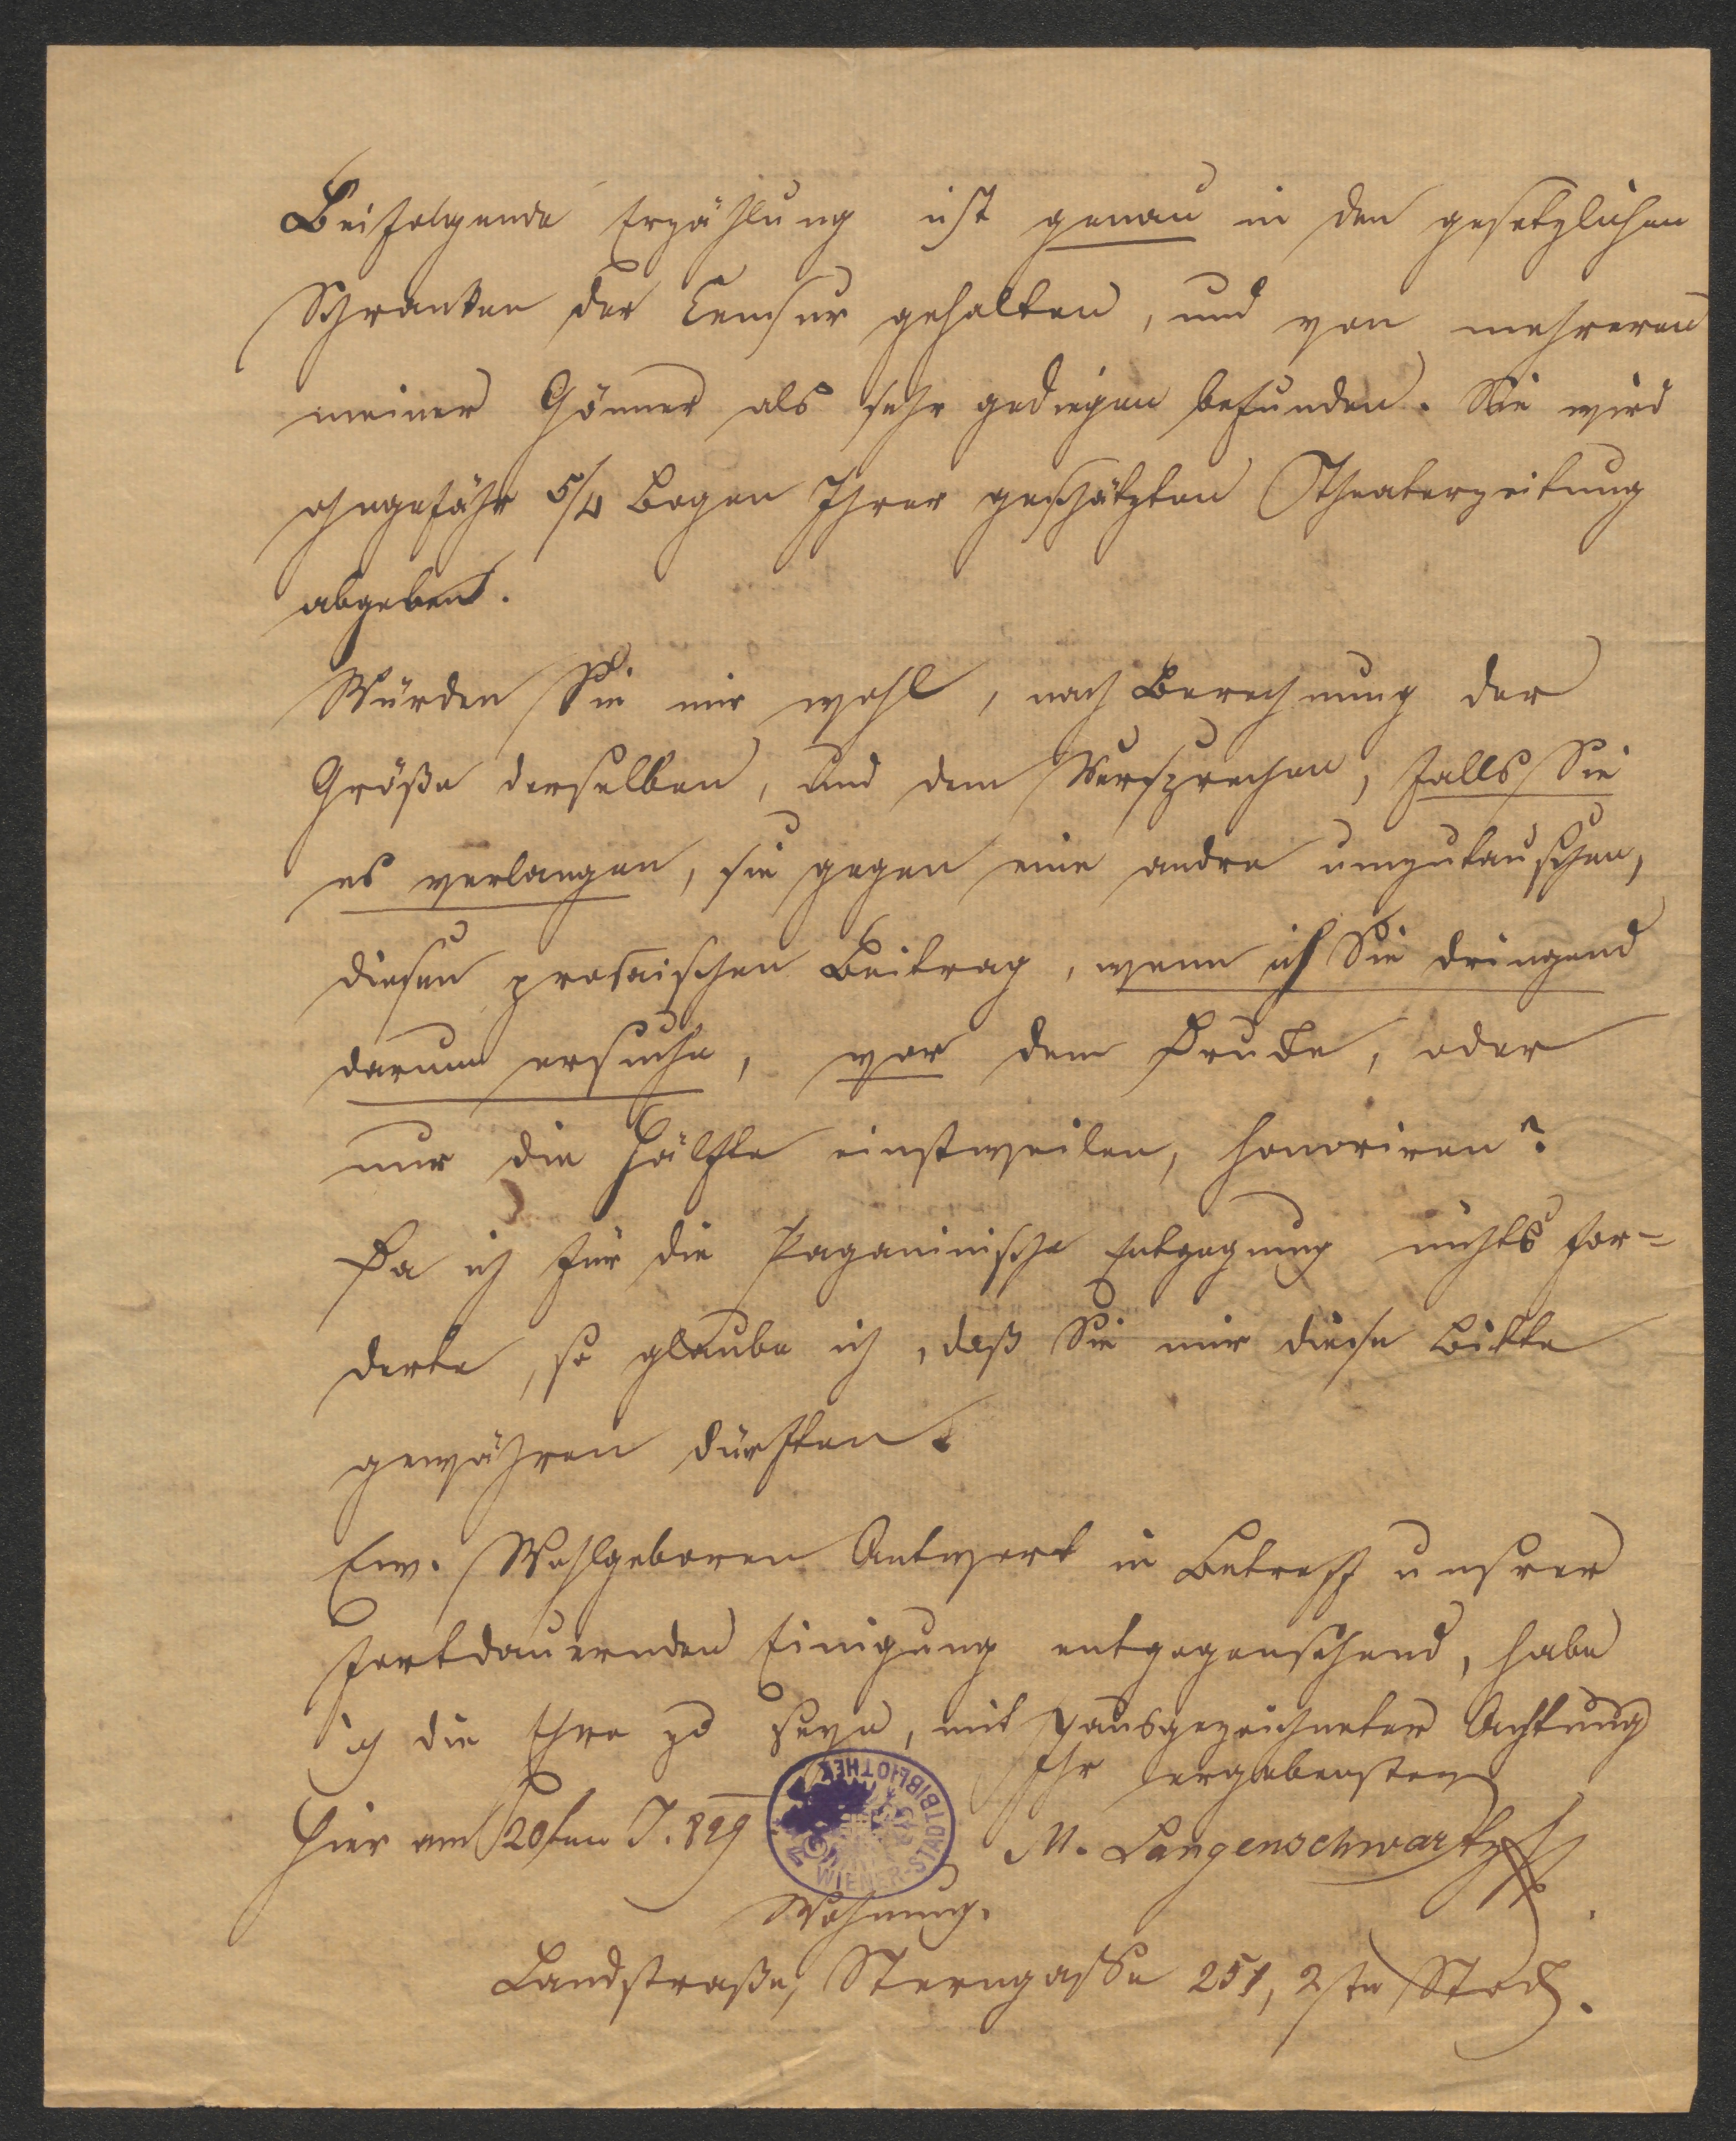 Beifolgende Erzählung ist genau in den gesetzlichen
Schranken der Censur gehalten, und von mehreren
meiner Gönner als sehr gediegen befunden. Sie wird
ohngefähr 5/4 Bogen Ihrer geschätzten Theaterzeitung
abgeben.
Würden Sie mir wohl, nach Berechnung der
Größe derselben, und dem Versprechen, falls Sie
es verlangen, sie gegen eine andre umzutauschen,
diesen prosaischen Beitrag, wenn ich Sie dringend
darum ersuche, vor dem Drucke, oder
nur die Hälfte einstweilen, honoriren?
Da ich für die Paganinische Entgegnung nichts for-
derte, so glaube ich, daß Sie mir diese Bitte
gewähren dürften.
Ew. Wohlgeboren Antwort in Betreff unsrer
fortdauernden Einigung entgegensehend, habe
ich die Ehre zu seyn, mit ausgezeichneter Achtung
Ihr ergebenster
Hier am 20ten J. 829
M. Langenschwartz
WIENER STADTBIBLIOTHEK
Wohnung.
Landstraße, Sterngasse 251, 2ter Stock.